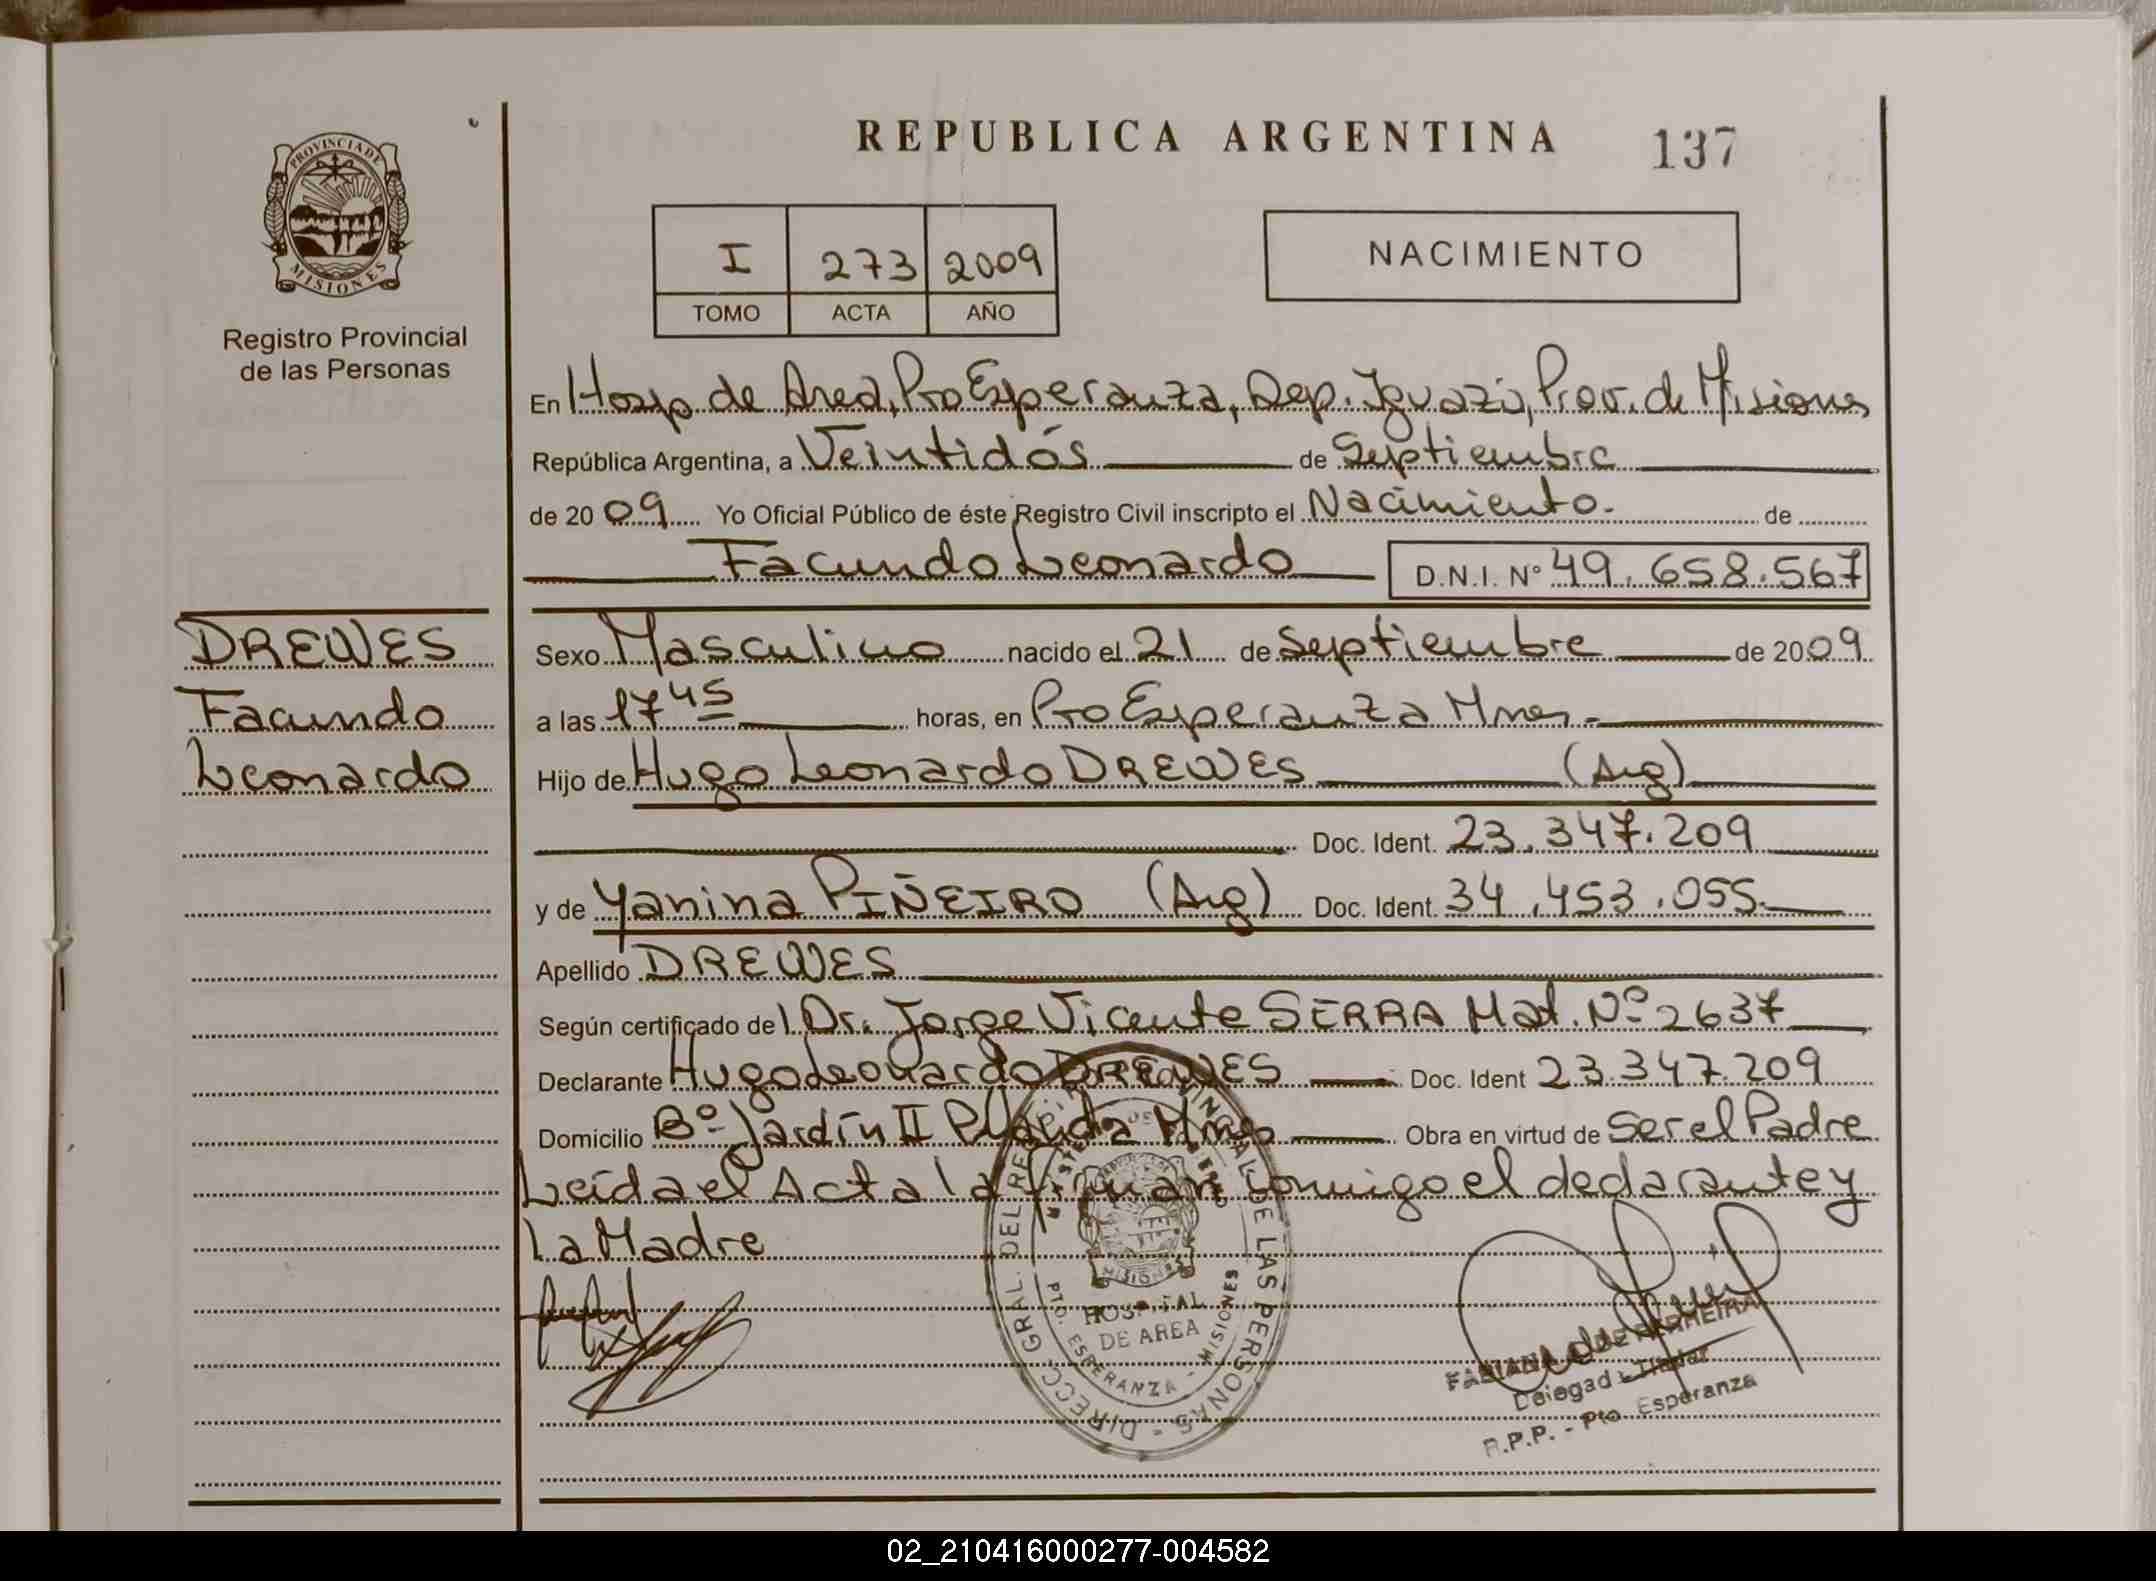 REPUBLICA ARGENTINA
137
PROVINCIA DE
MISIONES
Registro Provincial
de las Personas
I 273 2009
TOMO ACTA AÑO
NACIMIENTO
En Hosp. de Area, Pto Esperanza, Dep. Iguazú, Prov. de Misiones
República Argentina, a Veintidós de Septiembre
de 2009 Yo Oficial Público de éste Registro Civil inscripto el Nacimiento. de
Facundo Leonardo D.N.I. Nº 49.658.567
DREWES
Facundo
Leonardo
Sexo Masculino nacido el 21 de Septiembre de 2009
a las 17 45 horas, en Pto Esperanza Mnes.
Hijo de Hugo Leonardo DREWES (Arg)
Doc. Ident. 23.347.209
y de Yanina PIÑEIRO (Arg) Doc. Ident. 34.453.055.
Apellido DREWES
Según certificado de Dr. Jorge Vicente SERRA Mat. Nº 2637
Declarante Hugo Leonardo DREWES Doc. Ident 23.347.209
Domicilio Bº Jardín II Pto Mnes Obra en virtud de Ser el Padre
Leída el Acta la firman conmigo el declarante y
la Madre
DIRECC. GRAL. DEL REG. PROVINCIAL DE LAS PERSONAS
MISIONES
HOSPITAL
DE AREA
PTO. ESPERANZA - MISIONES
FABIANA DE FERREIRA
Delegada Titular
R.P.P. - Pto. Esperanza
02_210416000277-004582